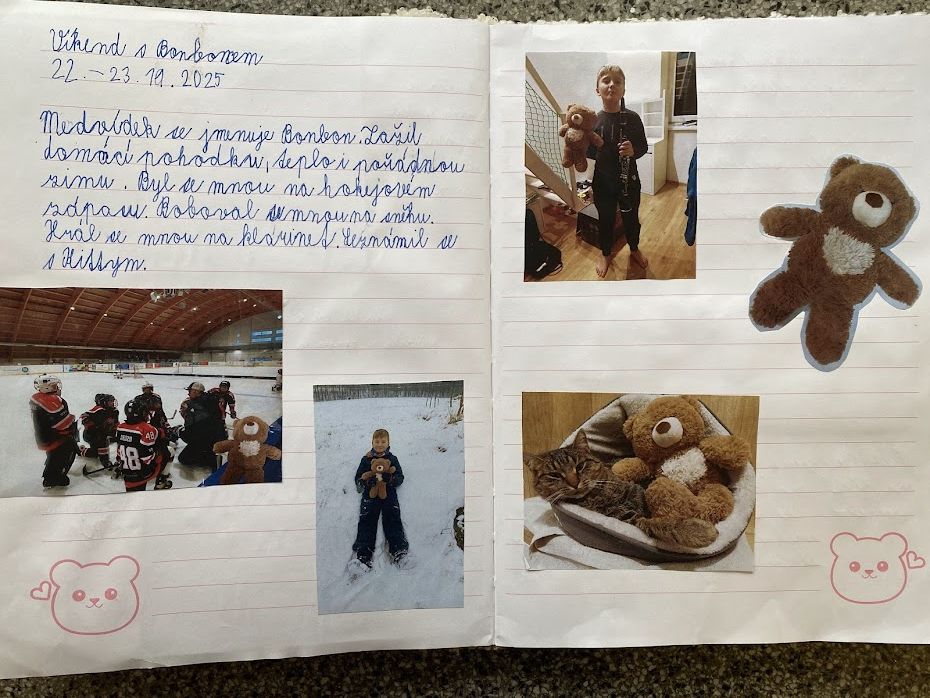 Víkend s Bonbonem
22. – 23. 19. 2025
Medvídek se jmenuje Bonbon. Zažil
domácí pohodku, teplo i pořádnou
zimu. Byl se mnou na hokejovém
zápasu. Boboval se mnou na sněhu.
Hrál se mnou na klarinet. Seznámil se
s Kittym.
48
48